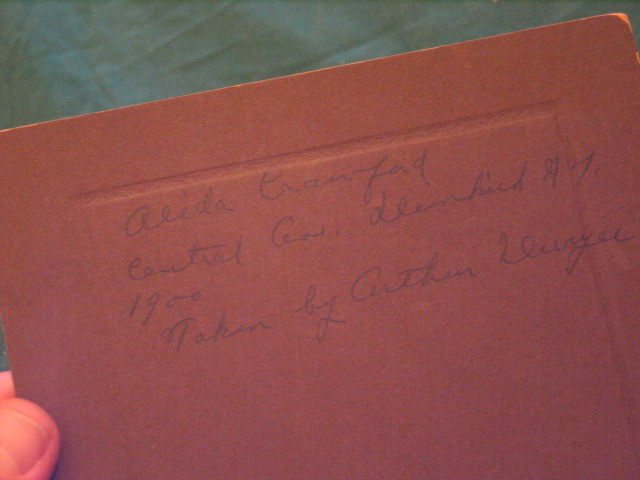 Alida Crawford
Central Ave. Dunkirk N.Y.
1900
Taken by Arthur Duryee